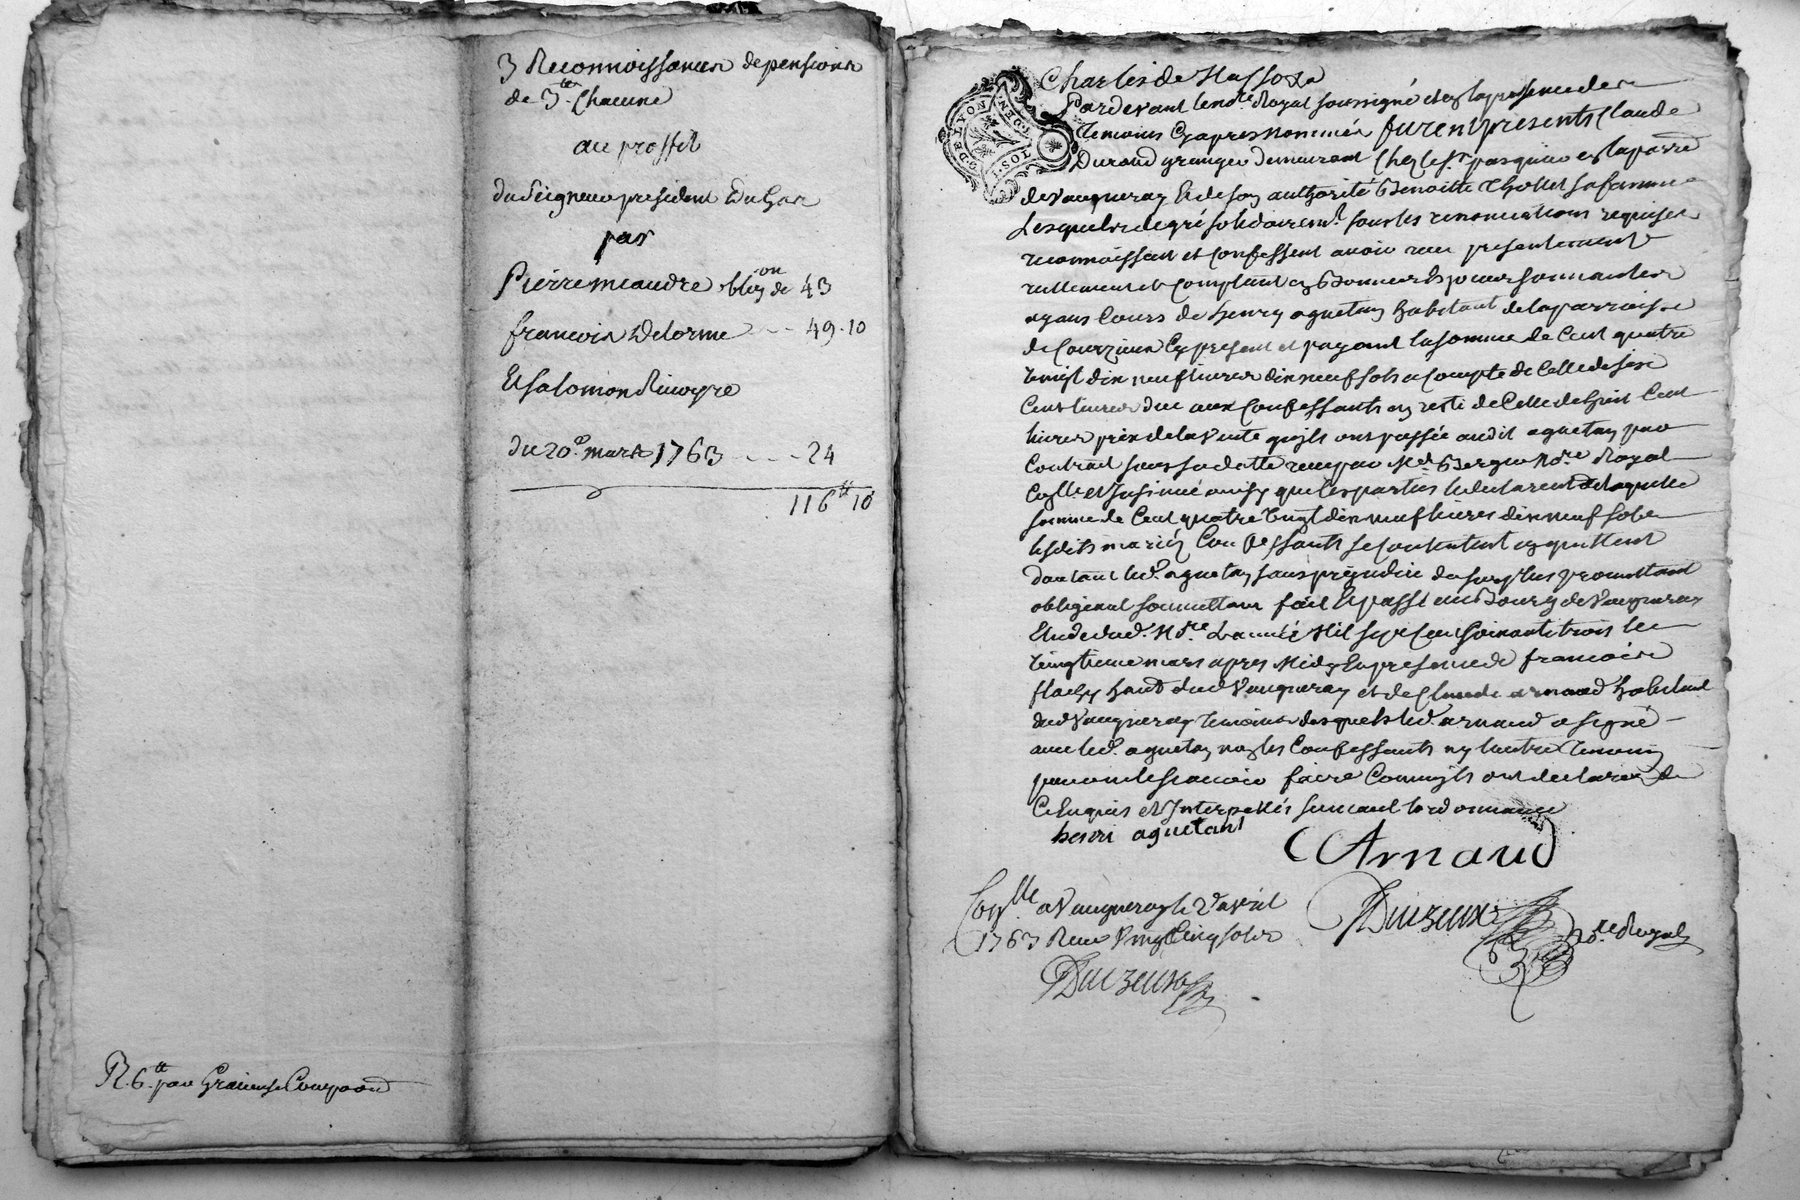 3 Reconnoissances de pensions
de 3tt Chacune
au proffit
du Seigneur president Dugas
par
Pierre meaudre oblig.on de 43
francois Delorme - - 49-10
Et Salomon Rivoyre
du 20e mars 1763 - - - 24
116tt 10
R. 6tt par
Charles de
Pardevant le no.re Royal soussigné et en la presence des
temoins Cy apres nommés furent presents Claude
Durand granger demeurant Chez le Sr pasquier en la parr.
de Vaugneray Et de son authorité Benoitte Thollet sa femme
Lesquels de gré solidairem.t sous les renonciations requises
reconnoissent et Confessent avoir reçu presentement
reellement et Comptant en Bonnes Espèces sonnantes
ayans Cours de henry aguetan habitant de la parroisse
de Courzieu Cy present et payant la somme de Cent quatre
vingt dix neuf livres dix neuf sols a Compte de Celle de six
Cent livres due aux Confessants en reste de Celle de huit Cent
livres prix de la Vente qu'ils ont passée audit aguetan par
Contrat sous sa datte reçu par Me Berger No.re Royal
Con.llé et Insinué ainsy que les parties le declarent de laquelle
somme de Cent quatre vingt dix neuf livres dix neuf sols
lesdits mariés Confessants se Contentent en quittent
d'autant led. aguetan sans prejudice du surplus promettant
obligeant soumettant fait Et passé au Bourg de Vaugneray
Etude dud. No.re L'année Mil sept Cent soixante trois le
vingtieme mars apres Midy En presence de francois
flachy hant dud Vaugneray et de Claude arnaud habitant
dud Vaugneray temoins desquels led. arnaud a signé
avec led. aguetan non les Confessants ny l'autre temoin
pour ne le scavoir faire Comm'ils ont declaré de
Ce Enquis et Interpellés suivant l'ordonnance
henri aguetant
C Arnaud
Con.llé a Vaugneray le 2e avril
1763 Reçu Vingt Cinq sols
Duizeux
Duizeux no.re Royal